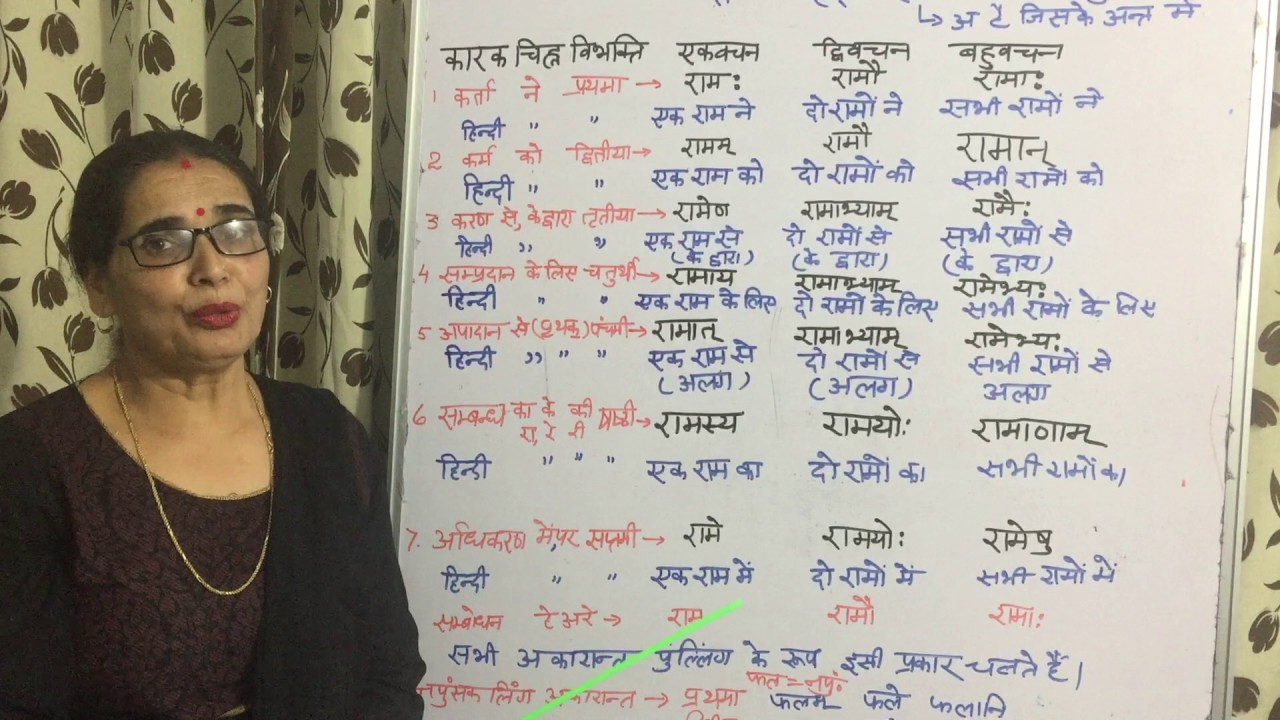 ↳ अ है जिसके अन्त में
कारक चिह्न विभक्ति एकवचन द्विवचन बहुवचन
1 कर्ता ने प्रथमा → रामः रामौ रामाः
हिन्दी " " एक राम ने दो रामों ने सभी रामों ने
2 कर्म को द्वितीया → रामम् रामौ रामान्
हिन्दी " " एक राम को दो रामों को सभी रामों को
3 करण से, के द्वारा तृतीया → रामेण रामाभ्याम् रामैः
हिन्दी " " एक राम से दो रामों से सभी रामों से
(के द्वारा) (के द्वारा) (के द्वारा)
4 सम्प्रदान के लिए चतुर्थी → रामाय रामाभ्याम् रामेभ्यः
हिन्दी " " एक राम के लिए दो रामों के लिए सभी रामों के लिए
5 अपादान से (पृथक्) पंचमी → रामात् रामाभ्याम् रामेभ्यः
हिन्दी " " " एक राम से दो रामों से सभी रामों से
(अलग) (अलग) अलग
6 सम्बन्ध का के की षष्ठी → रामस्य रामयोः रामाणाम्
रा, रे री
हिन्दी " " " एक राम का दो रामों का सभी रामों का
7. अधिकरण में, पर सप्तमी → रामे रामयोः रामेषु
हिन्दी " " एक राम में दो रामों में सभी रामों में
सम्बोधन हे अरे → राम रामौ रामाः
सभी अकारान्त पुल्लिंग के रूप इसी प्रकार चलते हैं।
फल = नपुं॰
नपुंसक लिंग अकारान्त → प्रथमा फलम् फले फलानि